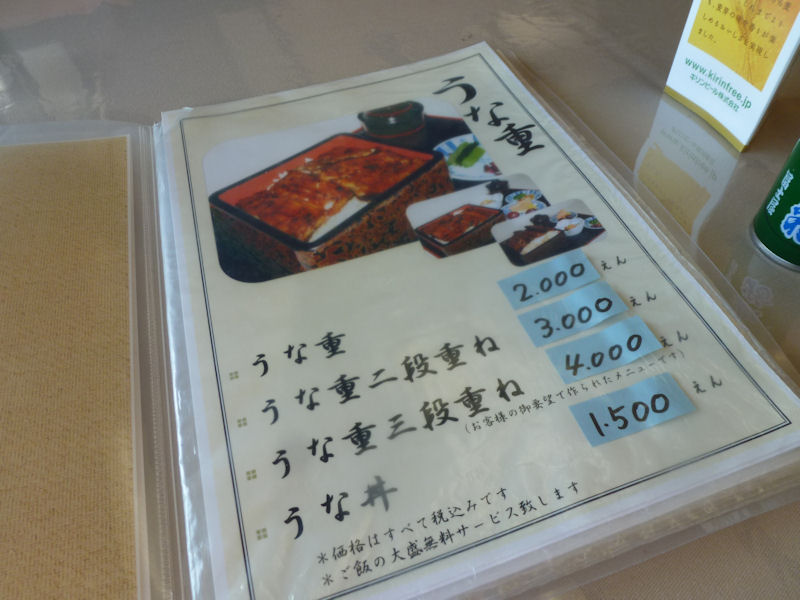 うな重
うな重 2.000 えん
うな重二段重ね 3.000 えん
うな重三段重ね 4.000 えん
(お客様の御要望で作られたメニューです)
うな丼 1.500 えん
*価格はすべて税込みです
*ご飯の大盛無料サービス致します
www.kirinfree.jp
キリンビール株式会社